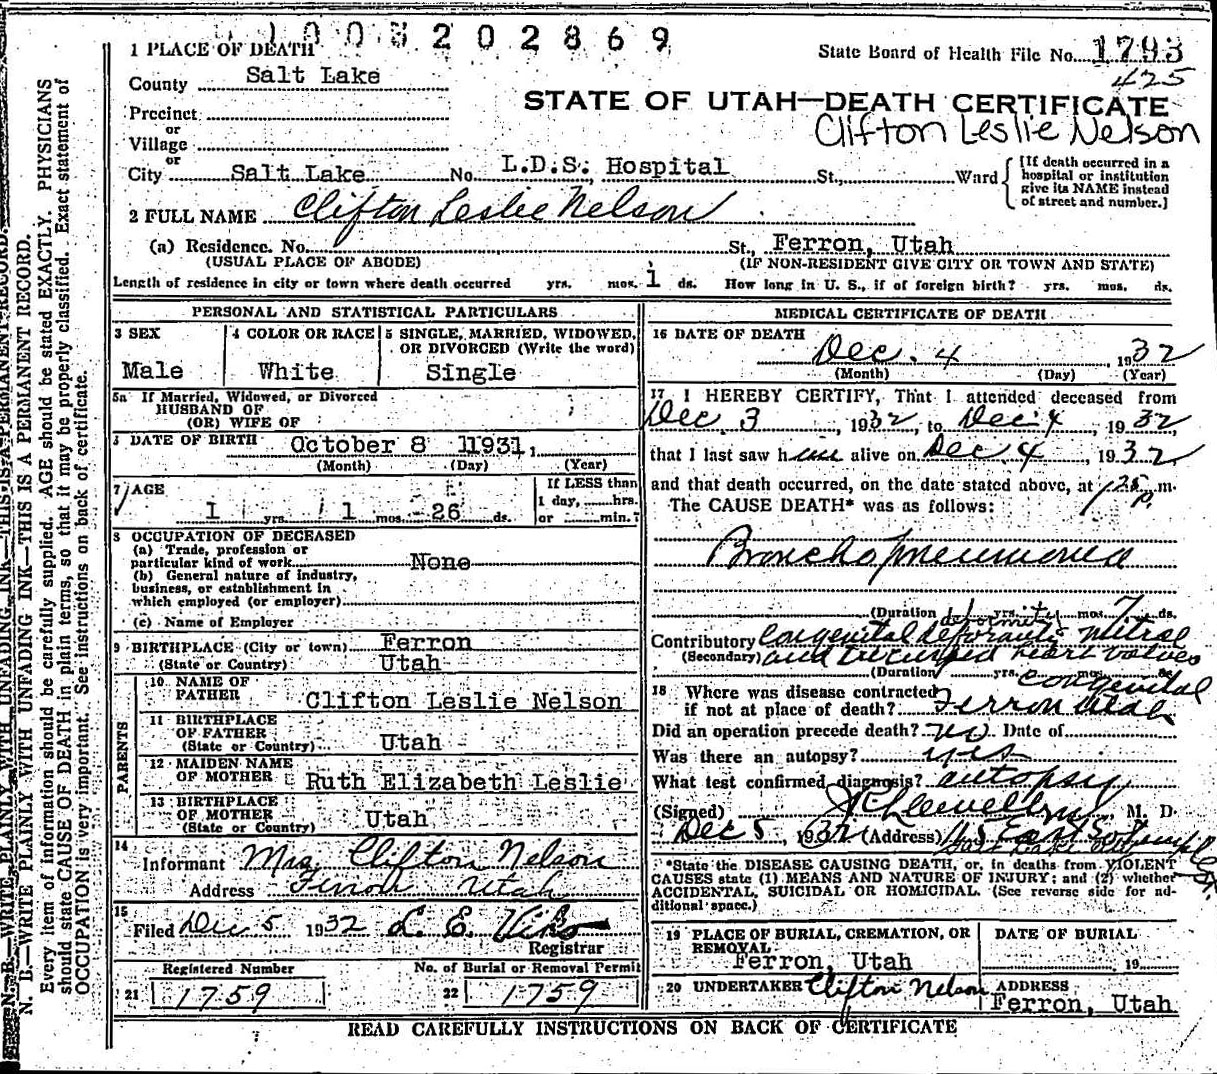 1003202869
1 PLACE OF DEATH
State Board of Health File No. 1793
425
County Salt Lake
STATE OF UTAH—DEATH CERTIFICATE
Precinct
Clifton Leslie Nelson
or
Village
or
City Salt Lake No. L.D.S. Hospital St., Ward
[If death occurred in a
hospital or institution
give its NAME instead
of street and number.]
2 FULL NAME Clifton Leslie Nelson
(a) Residence. No. St., Ferron, Utah
(USUAL PLACE OF ABODE) (IF NON-RESIDENT GIVE CITY OR TOWN AND STATE)
Length of residence in city or town where death occurred yrs. mos. 1 ds. How long in U. S., if of foreign birth? yrs. mos. ds.
PERSONAL AND STATISTICAL PARTICULARS
3 SEX 4 COLOR OR RACE 5 SINGLE, MARRIED, WIDOWED,
OR DIVORCED (Write the word)
Male White Single
5a If Married, Widowed, or Divorced
HUSBAND OF
(OR) WIFE OF
6 DATE OF BIRTH October 8 11931,
(Month) (Day) (Year)
7 AGE If LESS than
1 day, hrs.
1 yrs. 1 mos. 26 ds. or min.?
8 OCCUPATION OF DECEASED
(a) Trade, profession or
particular kind of work None
(b) General nature of industry,
business, or establishment in
which employed (or employer)
(c) Name of Employer
9 BIRTHPLACE (City or town) Ferron
(State or Country) Utah
PARENTS
10 NAME OF
FATHER Clifton Leslie Nelson
11 BIRTHPLACE
OF FATHER
(State or Country) Utah
12 MAIDEN NAME
OF MOTHER Ruth Elizabeth Leslie
13 BIRTHPLACE
OF MOTHER
(State or Country) Utah
14
Informant Mrs. Clifton Nelson
Address Ferron Utah
15
Filed Dec 5 1932 L. E. Viko
Registrar
Registered Number No. of Burial or Removal Permit
21 1759 22 1759
MEDICAL CERTIFICATE OF DEATH
16 DATE OF DEATH
Dec. 4 1932
(Month) (Day) (Year)
17 I HEREBY CERTIFY, That I attended deceased from
Dec 3, 1932, to Dec 4, 1932,
that I last saw him alive on Dec. 4, 1932,
and that death occurred, on the date stated above, at 1 25 P. m.
The CAUSE DEATH* was as follows:
Bronchopneumonia
(Duration yrs. mos. 7 ds.
deformity
Contributory Congenital mitral
(Secondary) and tricuspid heart valves
(Duration yrs. mos. ds.
congenital
18 Where was disease contracted
if not at place of death? Ferron Utah
Did an operation precede death? no Date of
Was there an autopsy? yes
What test confirmed diagnosis? autopsy
(Signed) M. D.
Dec 5, 1932 (Address)
*State the DISEASE CAUSING DEATH, or, in deaths from VIOLENT
CAUSES state (1) MEANS AND NATURE OF INJURY; and (2) whether
ACCIDENTAL, SUICIDAL OR HOMICIDAL. (See reverse side for additional space.)
19 PLACE OF BURIAL, CREMATION, OR
REMOVAL
Ferron, Utah
DATE OF BURIAL
19
20 UNDERTAKER Clifton Nelson
ADDRESS
Ferron, Utah
READ CAREFULLY INSTRUCTIONS ON BACK OF CERTIFICATE
N. B.—WRITE PLAINLY WITH UNFADING INK—THIS IS A PERMANENT RECORD.
N. B.—WRITE PLAINLY WITH UNFADING INK—THIS IS A PERMANENT RECORD.
Every item of information should be carefully supplied. AGE should be stated EXACTLY. PHYSICIANS
should state CAUSE OF DEATH in plain terms, so that it may be properly classified. Exact statement of
OCCUPATION is very important. See instructions on back of certificate.